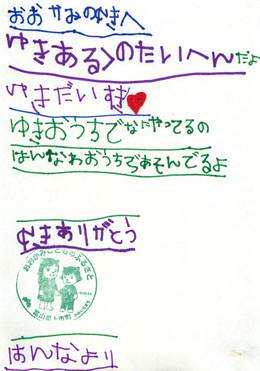 おおかみのゆきへ
ゆきあるくのたいへんだよ
ゆきだいすき
ゆきおうちでなにやってるの
はんなわおうちであそんでるよ
ゆきありがとう
おおかみこどものふるさと
富山県上市町
はんなより